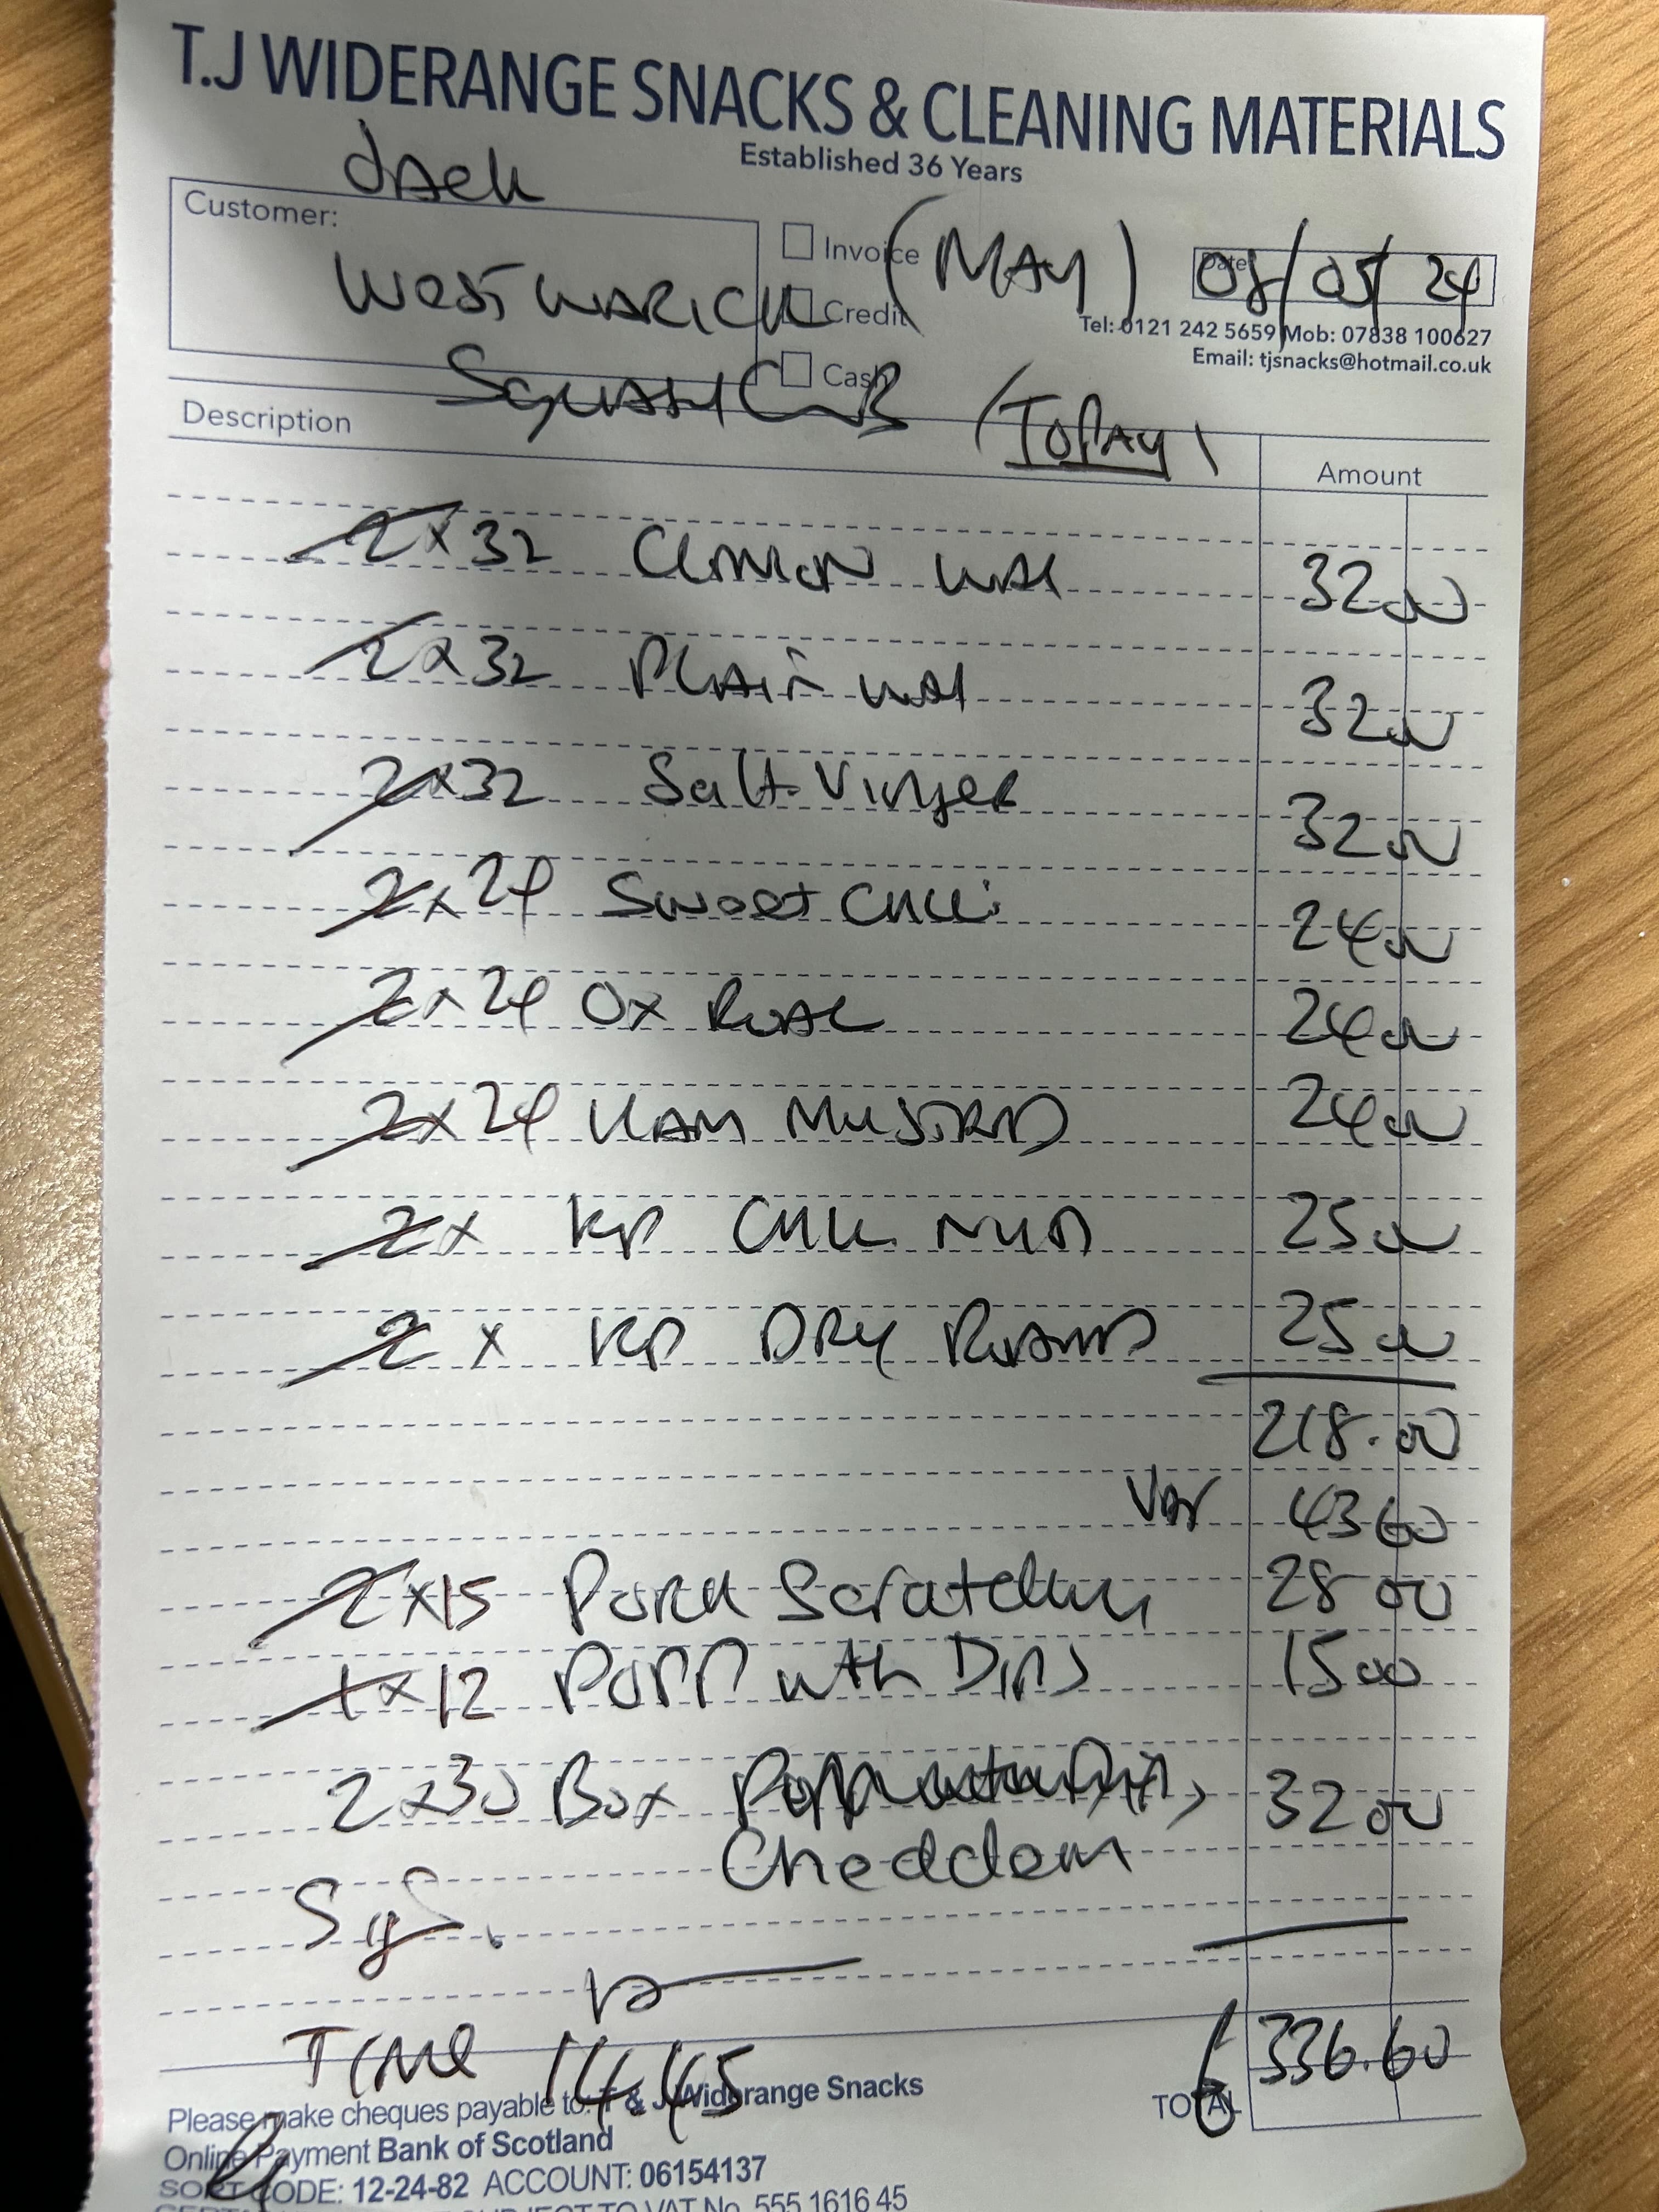 T.J WIDERANGE SNACKS & CLEANING MATERIALS
Established 36 Years
JACK
Customer:
WEST WARICK
SQUASH CLUB
Invoice
Credit
Cash
(MAY)
Date
08/05/24
Tel: 0121 242 5659 Mob: 07838 100627
Email: tjsnacks@hotmail.co.uk
(TODAY)
Description Amount
2x32 32 00
2x32 PLAIN 32 00
2x32 Salt Vinger 32 00
2x24 Sweet Chilli 24 00
2x24 Ox 24 00
2x24 HAM MUSTRD 24 00
2x KP CHILLI NUTS 25 00
2x KP DRY 25 00
218.00
VAT 43 60
2x15 Pork 28 00
1x12 with Dips 15 00
2x30 Box 32 00
TIME 14.45
TOTAL £ 336.60
Please make cheques payable to: T & J Widerange Snacks
Online Payment Bank of Scotland
SORT CODE: 12-24-82 ACCOUNT: 06154137
SUBJECT TO VAT No. 555 1616 45